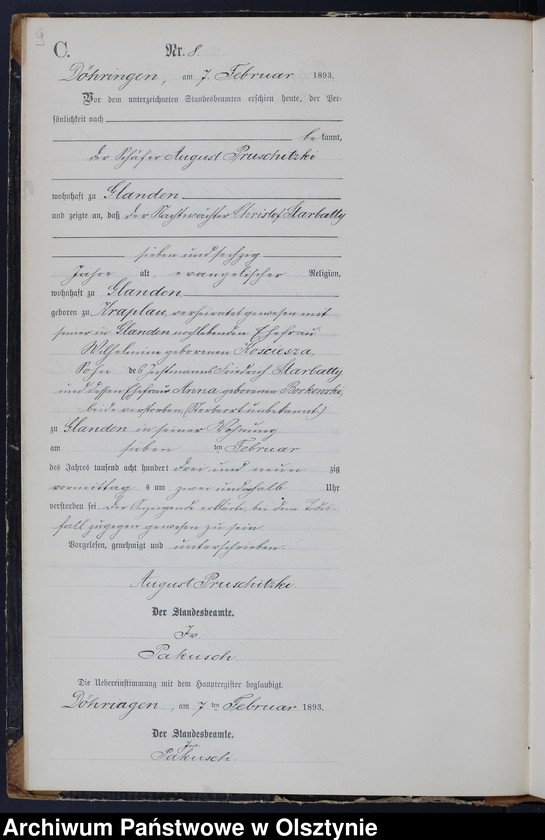 C. Nr. 8.
Döhringen, am 7. Februar 1893.
Vor dem unterzeichneten Standesbeamten erschien heute, der Per-
sönlichkeit nach
bekannt,
der Schäfer August Pruschitzki
wohnhaft zu Glanden
und zeigte an, daß der Nachtwächter Christof Starbatty
sieben und sechzig
Jahre alt, evangelischer Religion,
wohnhaft zu Glanden
geboren zu Kraplau, verheiratet gewesen mit
seiner in Glanden nochlebenden Ehefrau
Wilhelmine geborenen Kosciesza,
Sohn des Instmanns Friedrich Starbatty
und dessen Ehefrau Anna geborenen Borkowski,
beide verstorben (Sterbeort unbekannt)
zu Glanden in seiner Wohnung
am sieben ten Februar
des Jahres tausend acht hundert drei und neun zig
vormittags um zwei und halb Uhr
verstorben sei. Der Anzeigende erklärte, bei dem Todes-
fall zugegen gewesen zu sein.
Vorgelesen, genehmigt und unterschrieben.
August Pruschitzki
Der Standesbeamte.
In
Pakusch
Die Uebereinstimmung mit dem Hauptregister beglaubigt.
Döhringen, am 7 ten Februar 1893.
Der Standesbeamte.
In
Pakusch.
Archiwum Państwowe w Olsztynie